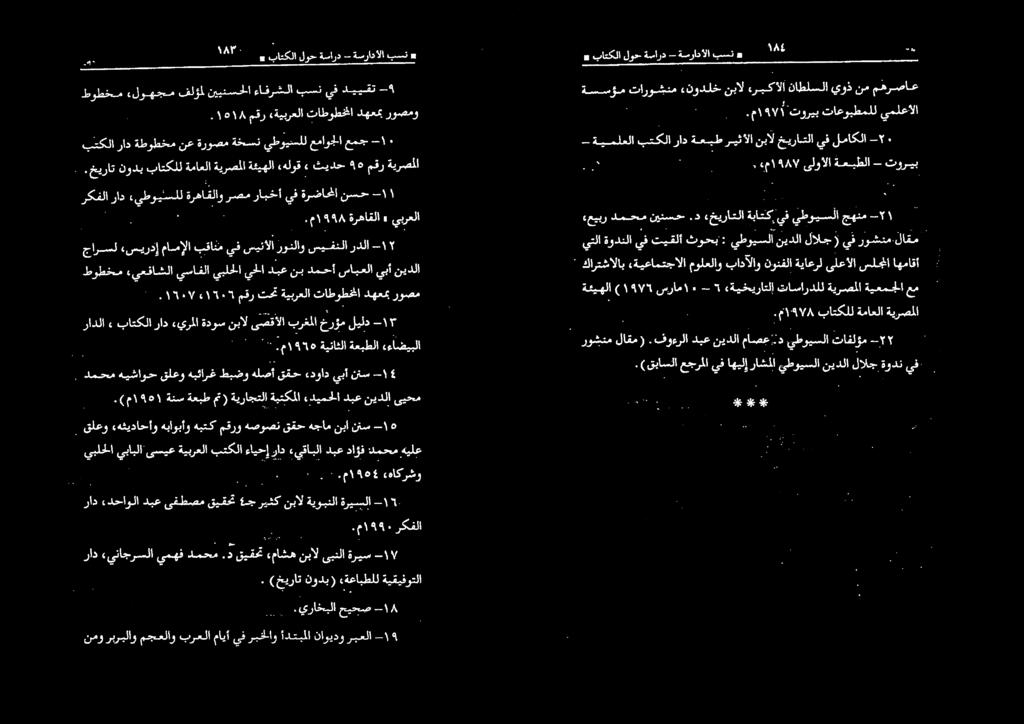 ■ نسب الأدارسة – دراسة حول الكتاب ■ ١٨٣
٩– تقييد في نسب الشرفاء الحسنيين لمؤلف مجهول، مخطوط
ومصور بمعهد المخطوطات العربية، رقم ١٥١٨.
١٠– جمع الجوامع للسيوطي نسخة مصورة عن مخطوطة دار الكتب
المصرية رقم ٩٥ حديث ، قوله، الهيئة المصرية العامة للكتاب بدون تاريخ.
١١– حسن المحاضرة في أخبار مصر والقاهرة للسيوطي، دار الفكر
العربي القاهرة ١٩٩٨م.
١٢– الدر النفيس والنور الأنيس في مناقب الإمام إدريس، لسراج
الدين أبي العباس أحمد بن عبد الحي الحلبي الفاسي الشافعي، مخطوط
مصور بمعهد المخطوطات العربية تحت رقم ١٦٠٦، ١٦٠٧.
١٣– دليل مؤرخ المغرب الأقصى لابن سودة المري، دار الكتاب ، الدار
البيضاء، الطبعة الثانية ١٩٦٥م.
١٤– سنن أبي داود، حقق أصله وضبط غرائبه وعلق حواشيه محمد
محيى الدين عبد الحميد، المكتبة التجارية (تم طبعة سنة ١٩٥١م).
١٥– سنن ابن ماجه حقق نصوصه ورقم كتبه وأبوابه وأحاديثه، وعلق
عليه محمد فؤاد عبد الباقي، دار إحياء الكتب العربية عيسى البابي الحلبي
وشركاه، ١٩٥٤م.
١٦– السيرة النبوية لابن كثير جـ٤ تحقيق مصطفى عبد الواحد، دار
الفكر ١٩٩٠م.
١٧– سيرة النبى لابن هشام، تحقيق د. محمد فهمي السرجاني، دار
التوفيقية للطباعة، (بدون تاريخ) .
١٨– صحيح البخاري.
١٩– العبر وديوان المبتدأ والخبر في أيام العرب والعجم والبربر ومن
١٨٤ ■ نسب الأدارسة – دراسة حول الكتاب ■
عاصرهم من ذوي السلطان الأكبر، لابن خلدون، منشورات مؤسسة
الأعلمي للمطبوعات بيروت ١٩٧١م.
٢٠– الكامل في التاريخ لابن الأثير طبعة دار الكتب العلمية –
بيروت – الطبعة الأولى ١٩٨٧م،
٢١– منهج السيوطي في كتابة التاريخ، د. حسنين محمد ربيع،
مقال منشور في (جلال الدين السيوطي : بحوث ألقيت في الندوة التي
أقامها المجلس الأعلى لرعاية الفنون والآداب والعلوم الاجتماعية، بالاشتراك
مع الجمعية المصرية للدراسات التاريخية، ٦ – ١٠مارس ١٩٧٦) الهيئة
المصرية العامة للكتاب ١٩٧٨م.
٢٢– مؤلفات السيوطي د. عصام الدين عبد الرءوف. (مقال منشور
في ندوة جلال الدين السيوطي المشار إليها في المرجع السابق).
***